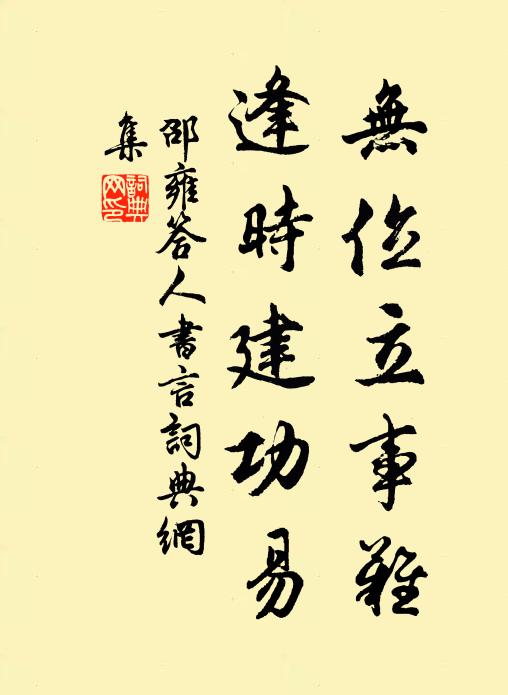 無位立事難
逢時建功易
邵雍答人書言詞典網
集
詞典
网印